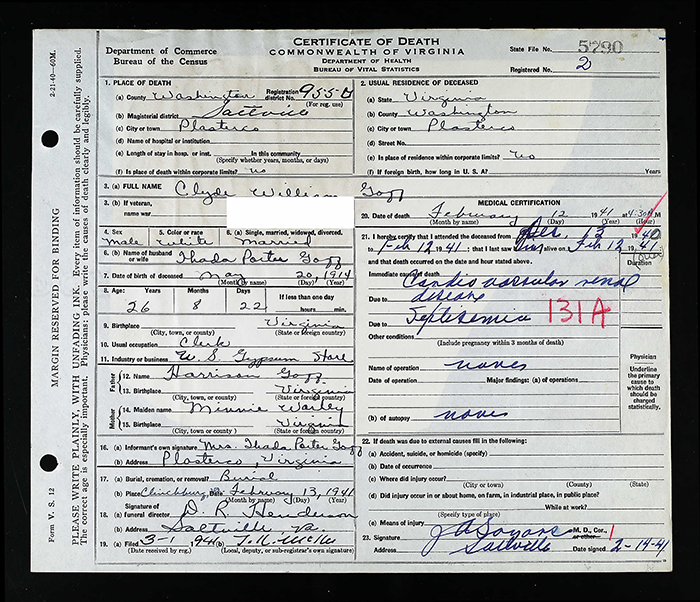 CERTIFICATE OF DEATH
COMMONWEALTH OF VIRGINIA
Department of Commerce
Bureau of the Census
DEPARTMENT OF HEALTH
BUREAU OF VITAL STATISTICS
State File No. 5790
Registered No. 2
2-21-40—60M.
MARGIN RESERVED FOR BINDING
PLEASE WRITE PLAINLY, WITH UNFADING INK. Every item of information should be carefully supplied.
The correct age is especially important. Physicians: please write the causes of death clearly and legibly.
Form V. S. 12
1. PLACE OF DEATH
(a) County Washington Registration district No. 955-
(For reg. use)
(b) Magisterial district Saltville
(c) City or town Plasterco
(d) Name of hospital or institution
(e) Length of stay in hosp. or inst. In this community
(Specify whether years, months, or days)
(f) Is place of death within corporate limits? No
2. USUAL RESIDENCE OF DECEASED
(a) State Virginia
(b) County Washington
(c) City or town Plasterco
(d) Street No.
(e) Is place of residence within corporate limits? No
(f) If foreign birth, how long in U. S. A.? Years
3. (a) FULL NAME Clyde William
3. (b) If veteran,
name war
4. Sex
male
5. Color or race
White
6. (a) Single, married, widowed, divorced.
Married
6. (b) Name of husband
or wife Thada Porter
7. Date of birth of deceased May 20, 1914
(Month by name) (Day) (Year)
8. Age: Years Months Days If less than one day
26 8 22 hours min.
9. Birthplace Virginia
(City, town, or county) (State or foreign country)
10. Usual occupation Clerk
11. Industry or business U. S. Gypsum Store
Father
12. Name Harrison
13. Birthplace Virginia
(City, town, or county) (State or foreign country)
Mother
14. Maiden name Minnie
15. Birthplace Virginia
(City, town, or county) (State or foreign country)
16. (a) Informant's own signature Mrs. Thada Porter
(b) Address Plasterco, Virginia
17. (a) Burial, cremation, or removal? Burial
(b) Place Clinchburg, Date February 13, 1941
(Month by name) (Day) (Year)
18. Signature of
(a) funeral director D. R. Henderson
(b) Address Saltville Va.
19. (a) Filed 3-1 1941 (b)
(Date received by reg.) (Local, deputy, or sub-registrar's own signature)
MEDICAL CERTIFICATION
20. Date of death February 12 1941 at 4:30 M
(Month by name) (Day) (Hour)
21. I hereby certify that I attended the deceased from 1940
to Feb 12 1941; that I last saw alive on Feb 12 1941;
and that death occurred on the date and hour stated above.
Duration
Immediate cause of death
Cardio vascular renal
Due to disease
Due to Septicemia 131A
Other conditions
(Include pregnancy within 3 months of death)
Name of operation none
Date of operation Major findings: (a) of operations
(b) of autopsy none
Physician
Underline
the primary
cause to
which death
should be
charged
statistically.
22. If death was due to external causes fill in the following:
(a) Accident, suicide, or homicide (specify)
(b) Date of occurrence
(c) Where did injury occur?
(City or town) (County) (State)
(d) Did injury occur in or about home, on farm, in industrial place, in public place?
While at work?
(Specify type of place)
(e) Means of injury
23. Signature M. D., Cor., 1
or other
Address Saltville Date signed 2-14-41